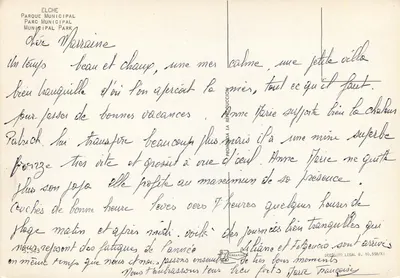 ELCHE
PARQUE MUNICIPAL
PARC MUNICIPAL
MUNICIPAL PARK
Chère Marraine
Un temps beau et chaud, une mer calme, une petite villa
bien tranquille d'où l'on aperçoit la mer, tout ce qu'il faut
pour passer de bonnes vacances. Anne Marie supporte bien la chaleur
Patrick lui transpire beaucoup plus mais il a une mine superbe
bronze très vite et grossit à vue d'oeil. Anne Marie ne quitte
plus son papa elle profite au maximum de sa présence.
Couchés de bonne heure levés vers 9 heures quelques heures de
plage matin et après midi. voilà des journées bien tranquilles qui
nous reposent des fatigues de l'année. et sont arrivés
en même temps que nous et nous pensons ensemble de bons moments
Nous t'embrassons tous bien fort Marie Françoise